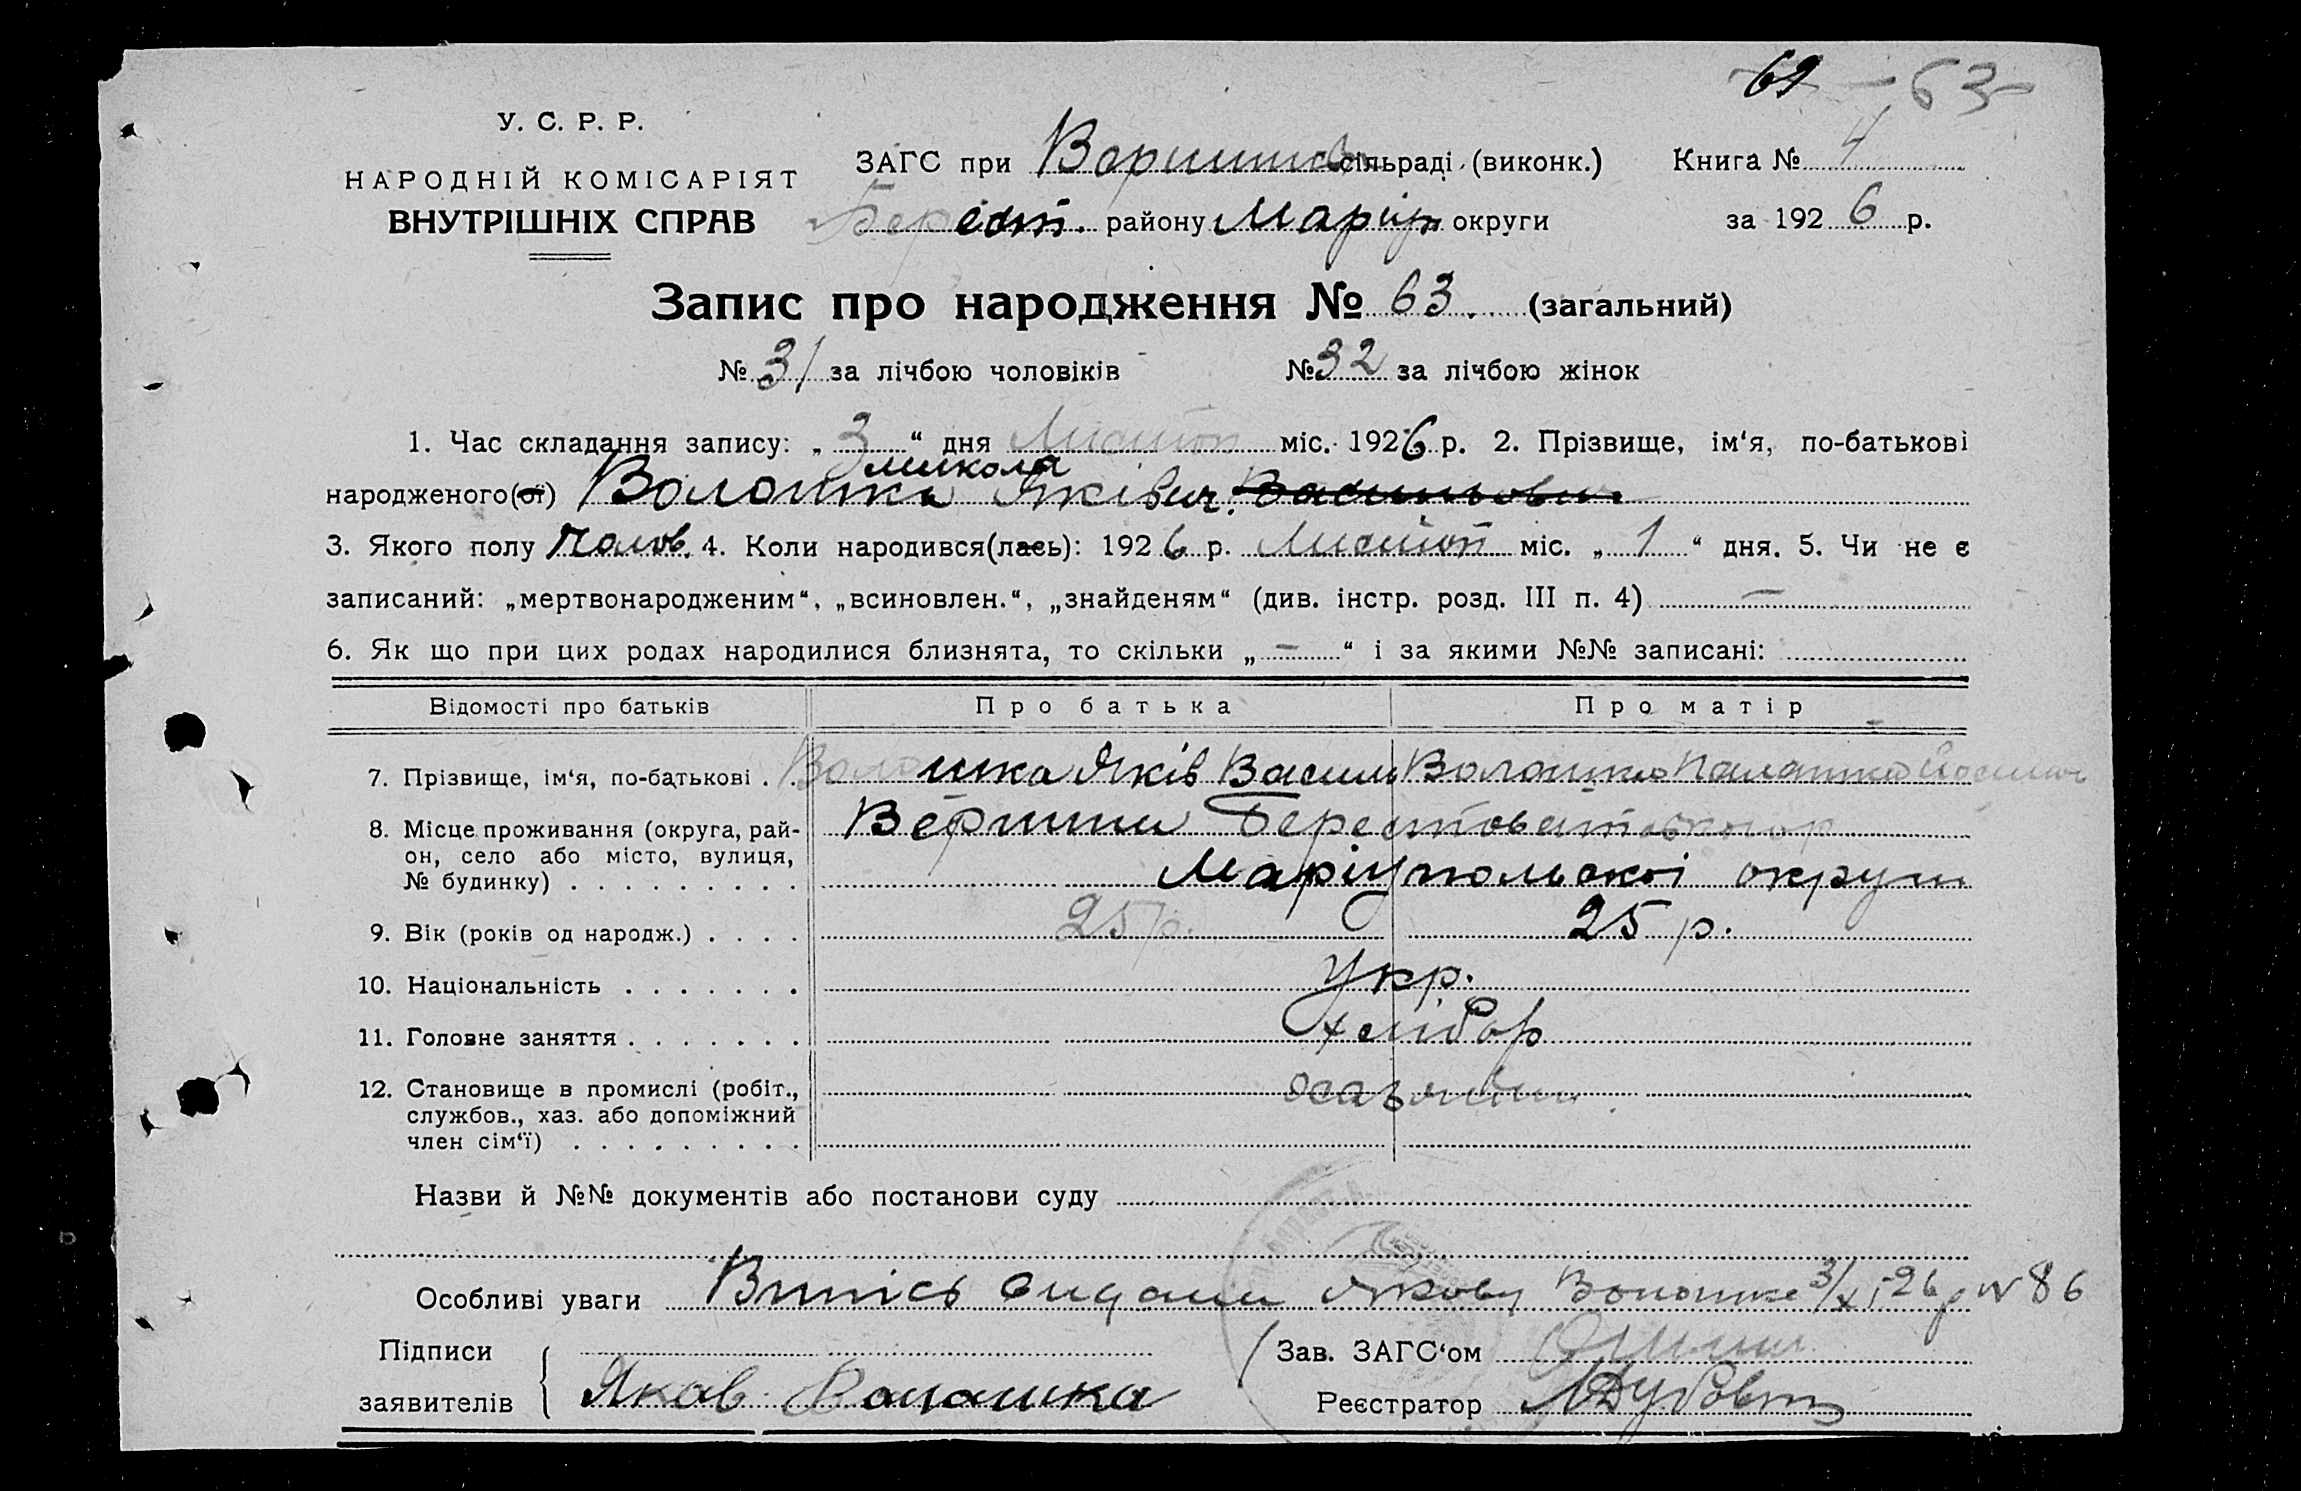 69 - 63 -
У. С. Р. Р.
НАРОДНІЙ КОМІСАРІЯТ
ВНУТРІШНІХ СПРАВ
ЗАГС при сільраді (виконк.) Книга № 4
Берест. району Маріуп округи за 1926 р.
Запис про народження № 63. (загальний)
№ 31 за лічбою чоловіків № 32 за лічбою жінок
1. Час складання запису: „ 3 “ дня Листоп міс. 1926 р. 2. Прізвище, ім‘я, по-батькові
микола
народженого(ої) Волошка Яківич. Васильович
3. Якого полу Чолов. 4. Коли народився(лась): 1926 р. Листоп міс. „ 1 “ дня. 5. Чи не є
записаний: „мертвонародженим“, „всиновлен.“, „знайденям“ (див. інстр. розд. III п. 4) —
6. Як що при цих родах народилися близнята, то скільки „ — “ і за якими №№ записані:
Відомості про батьків Про батька Про матір
7. Прізвище, ім‘я, по-батькові . . Волошка Яків Василь Волошка
8. Місце проживання (округа, рай-
он, село або місто, вулиця,
№ будинку) . . . . . . . . .
Вершини
Маріупольскоі округи
9. Вік (років од народж.) . . . . 25 р. 25 р.
10. Національність . . . . . . . Укр.
11. Головне заняття . . . . . . . хлібор
12. Становище в промислі (робіт.,
службов., хаз. або допоміжний
член сім‘ї) . . . . . . . . .
Назви й №№ документів або постанови суду
Особливі уваги Випісь видани Якову Волошке 3/XI-26 р № 86
Підписи
заявителів Яков Волошка
Зав. ЗАГС‘ом
Реєстратор